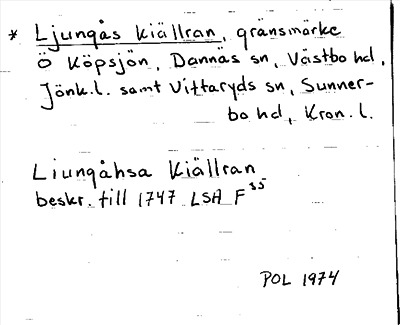 * Ljungås Kiällran, gränsmärke
Ö Köpsjön, Dannäs sn, Västbo hd,
Jönk.l. samt Vittaryds sn, Sunner-
bo hd, Kron. l.
Liungåhsa Kiällran
beskr. till 1747 LSA F 35
POL 1974